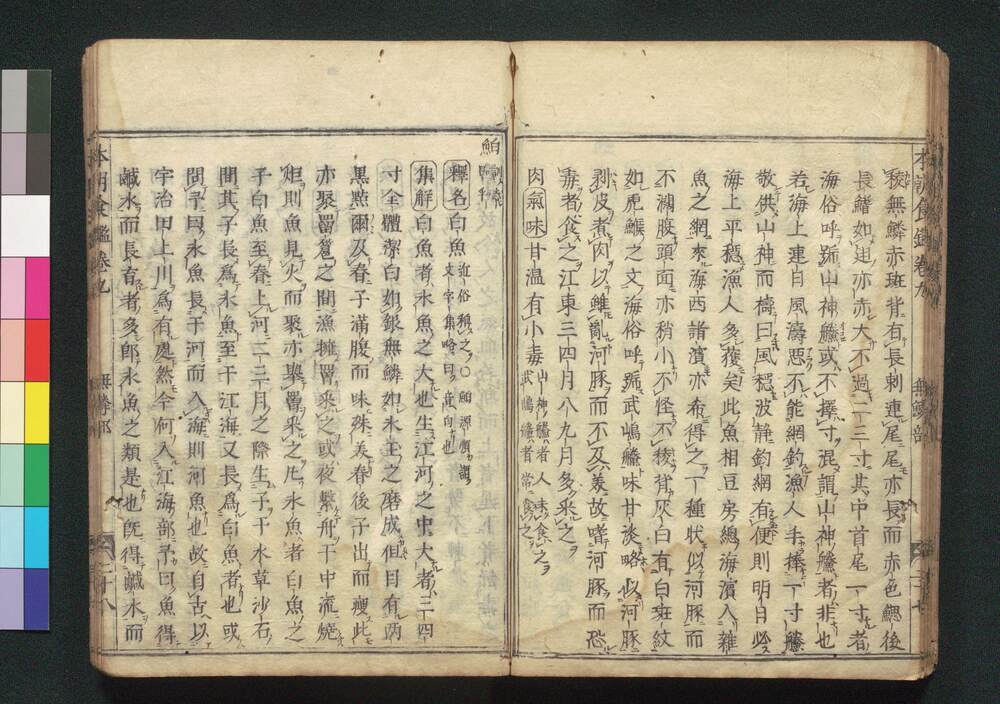 本朝食鑑卷九 無鱗部 二十七
稜無鱗赤斑背有長刺連尾尾亦長而赤色鰓後
長鰭如翅亦赤大不過二三寸其中首尾一寸者
海俗呼號山神鱶或不擇寸混謂山神鱶者非也
若海上連日風濤惡不能網釣漁人手捧一寸鱶
敬供山神而禱曰風穩波靜釣網有便則明日必
海上平穩漁人多獲矣此魚相豆房總海濱入雜
魚之網來海西諸濱亦希得之一種狀似河豚而
不滿腹頭面亦稍小不怪不稜背灰白有白斑紋
如虎鰒之文海俗呼號武嶋鱶味甘淡略似河豚
剥皮煮肉以雖亂河豚而不及美故嗜河豚而恐
毒者食之江東三四月八九月多采之
肉氣味甘溫有小毒 山神鱶者人未食之 武嶋鱶者常食之
鮊
釋名白魚 近俗稱之○ 文字集略曰
集解白魚者氷魚之大也生江河之中大者三四
寸全體潔白如銀無鱗如氷玉之磨成但目有兩
黑點爾及春子滿腹而味殊美春後子出而瘦此
亦聚罾笱之間漁擁罾采之或夜繫舟于中流燒
炬則魚見火而聚亦擧罾采之凡氷魚者白魚之
子白魚至春上河二三月之際生子于水草沙石
間其子長爲氷魚至于江海又長爲白魚者也或
問予曰氷魚長于河而入海則河魚也故自古以
宇治田上川爲有處然今何入江海部予曰魚得
鹹水而長育者多卽氷魚之類是也旣得鹹水而
本朝食鑑卷九 無鱗部 二十八